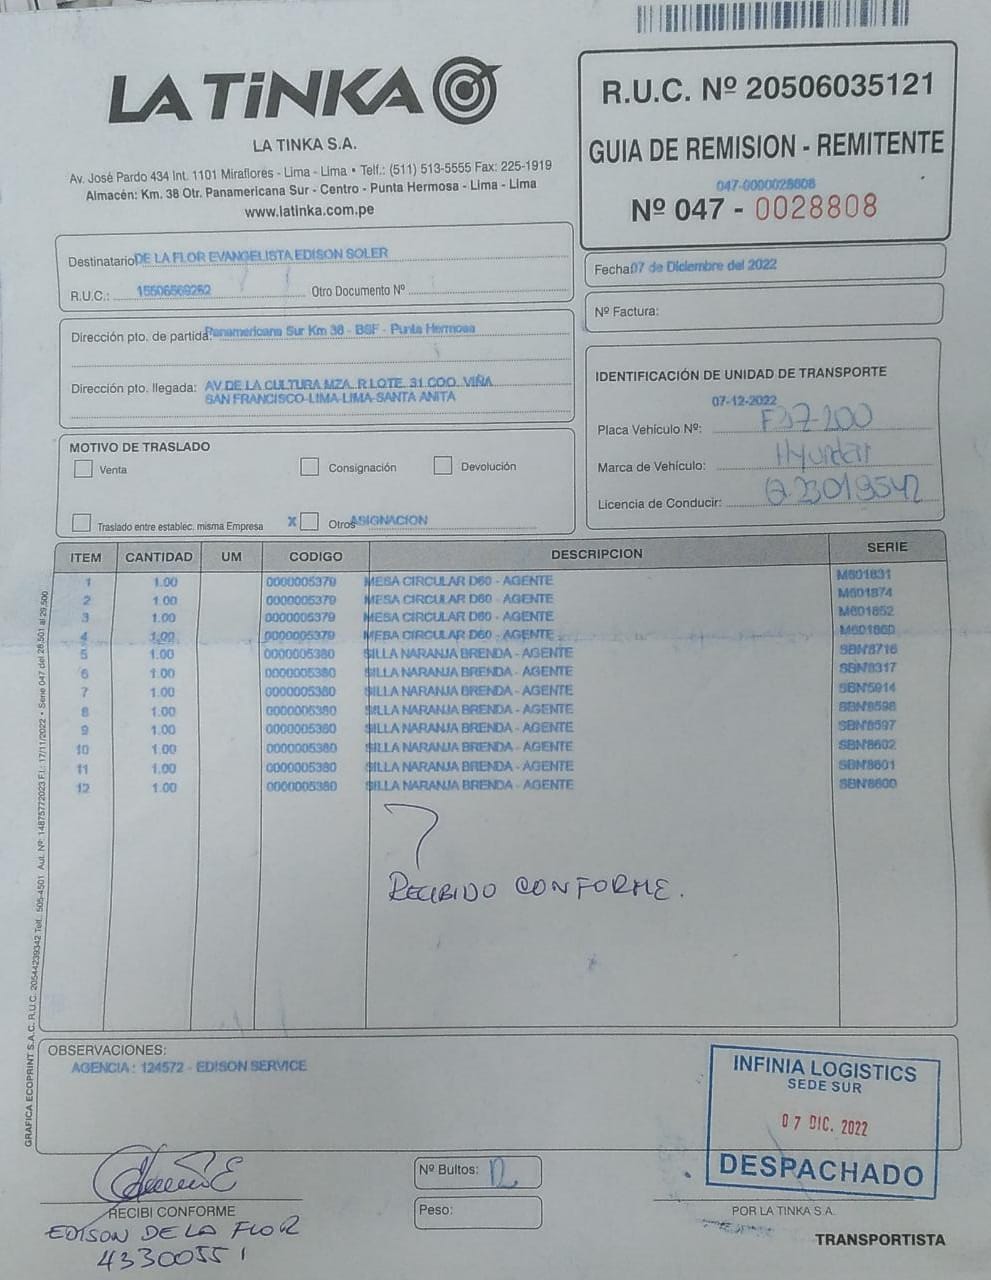 LA TiNKA
LA TINKA S.A.
Av. José Pardo 434 Int. 1101 Miraflores - Lima - Lima • Telf.: (511) 513-5555 Fax: 225-1919
Almacén: Km. 38 Otr. Panamericana Sur - Centro - Punta Hermosa - Lima - Lima
www.latinka.com.pe
R.U.C. Nº 20506035121
GUIA DE REMISION - REMITENTE
047-0000028808
Nº 047 - 0028808
Destinatario DE LA FLOR EVANGELISTA EDISON SOLER
R.U.C.: 15506569252 Otro Documento Nº
Fecha 07 de Diciembre del 2022
Nº Factura:
Dirección pto. de partida: Panamericana Sur Km 38 - BSF - Punta Hermosa
Dirección pto. llegada: AV DE LA CULTURA MZA. R LOTE. 31 COO. VIÑA
SAN FRANCISCO-LIMA-LIMA-SANTA ANITA
IDENTIFICACIÓN DE UNIDAD DE TRANSPORTE
07-12-2022
Placa Vehículo Nº:
Marca de Vehículo: Hyundai
Licencia de Conducir: Q23019542
MOTIVO DE TRASLADO
Venta Consignación Devolución
Traslado entre establec. misma Empresa X Otros ASIGNACION
ITEM CANTIDAD UM CODIGO DESCRIPCION SERIE
1 1.00 0000005379 MESA CIRCULAR D60 - AGENTE M601831
2 1.00 0000005379 MESA CIRCULAR D60 - AGENTE M601874
3 1.00 0000005379 MESA CIRCULAR D60 - AGENTE M601852
4 1.00 0000005379 MESA CIRCULAR D60 - AGENTE M601860
5 1.00 0000005380 SILLA NARANJA BRENDA - AGENTE SBN'8716
6 1.00 0000005380 SILLA NARANJA BRENDA - AGENTE SBN'8317
7 1.00 0000005380 SILLA NARANJA BRENDA - AGENTE SBN'5914
8 1.00 0000005380 SILLA NARANJA BRENDA - AGENTE SBN'8598
9 1.00 0000005380 SILLA NARANJA BRENDA - AGENTE SBN'8597
10 1.00 0000005380 SILLA NARANJA BRENDA - AGENTE SBN'8602
11 1.00 0000005380 SILLA NARANJA BRENDA - AGENTE SBN'8601
12 1.00 0000005380 SILLA NARANJA BRENDA - AGENTE SBN'8600
RECIBIDO CONFORME.
GRAFICA ECOPRINT S.A.C. R.U.C. 20544239342 Telf.: 505-4501 Aut. Nº: 14875772023 F.I.: 17/11/2022 • Serie 047 del 26,501 al 29,500
OBSERVACIONES:
AGENCIA : 124572 - EDISON SERVICE
INFINIA LOGISTICS
SEDE SUR
07 DIC. 2022
DESPACHADO
Nº Bultos: 12
Peso:
RECIBI CONFORME
EDISON DE LA FLOR
43300551
POR LA TINKA S.A.
TRANSPORTISTA